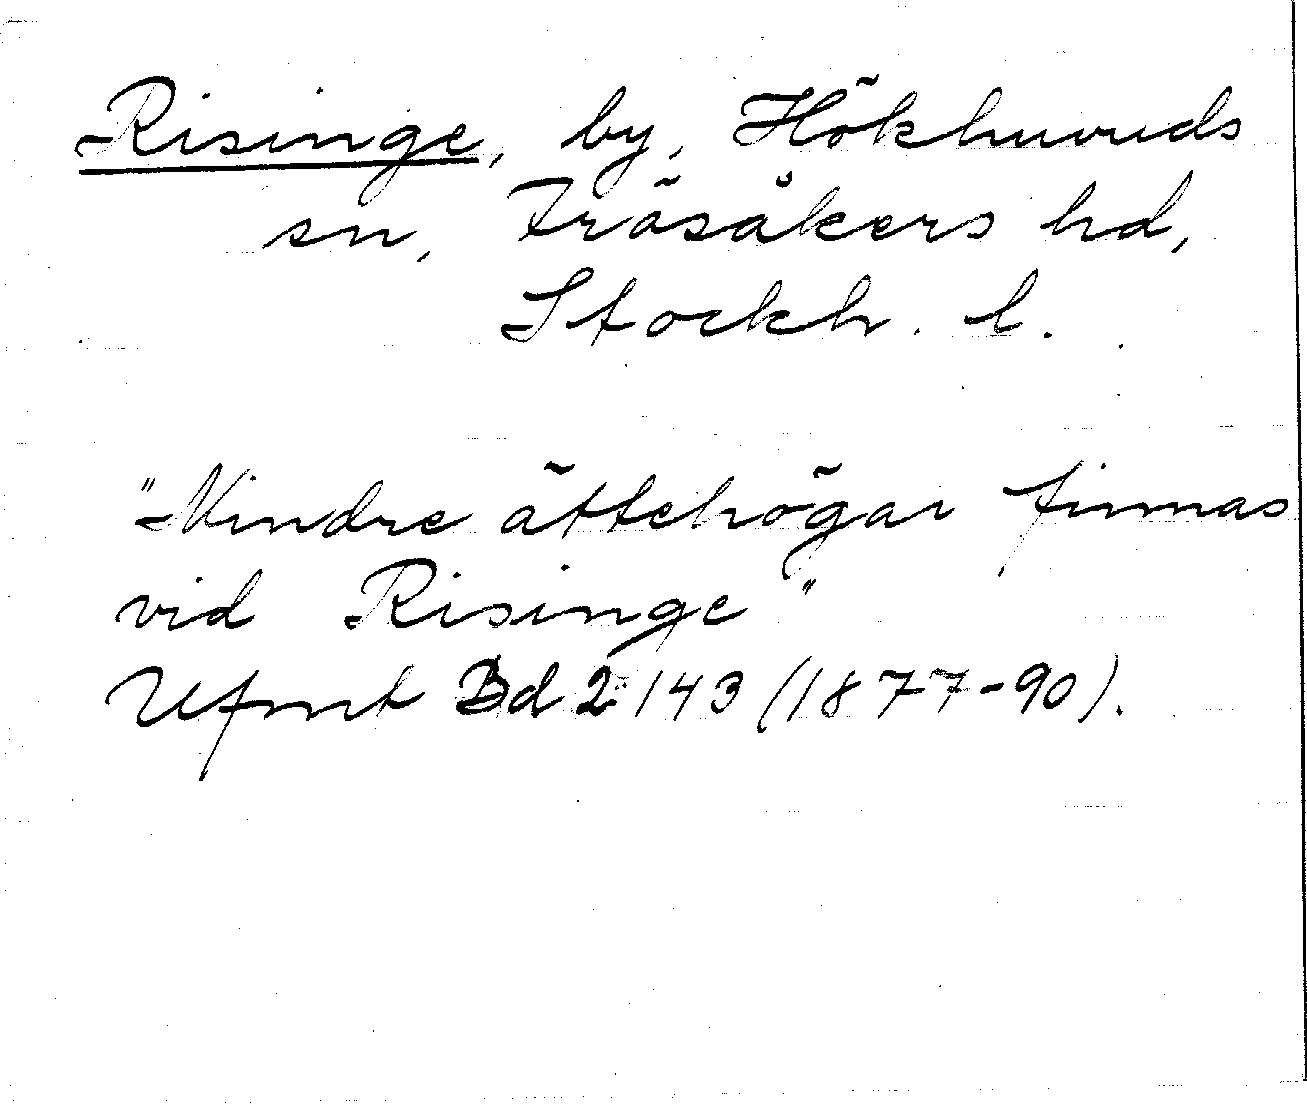 Risinge, by, Hökhuvuds
sn, Frösåkers hd,
Stockh. l.
"Mindre ättehögar finnas
vid Risinge"
Ufmt Bd 2 143 (1877-90).